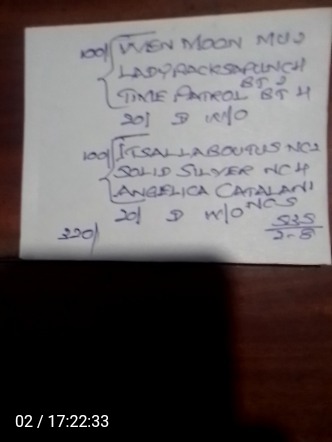 100/ WEN MOON MU2
LADYPACKSAPUNCH
BT 2
TIME PATROL BT 4
20/ D W/O
100/ ITSALLABOUTUS NC2
SOLID SILVER NC4
ANGELICA CATALANI
NC5
20/ D W/O
320/
535
2-8
02 / 17:22:33